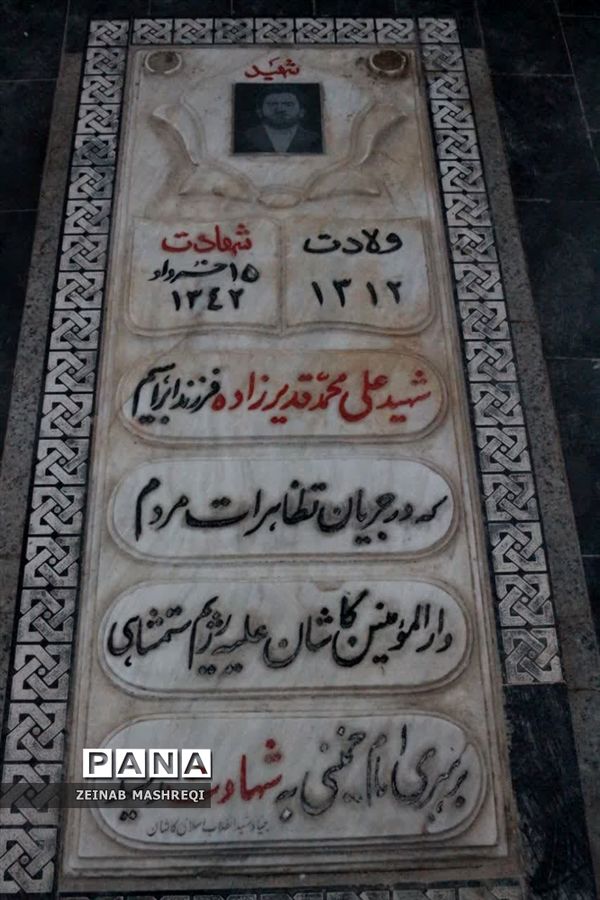 شهید
ولادت
۱۳۱۲
شهادت
۱۵ خرداد
۱۳٤۲
شهید علی محمد قدیرزاده فرزند ابراهیم
که در جریان تظاهرات مردم
دارالمؤمنین کاشان علیه رژیم ستمشاهی
برهبری امام خمینی به
بنیاد شهید انقلاب اسلامی کاشان
PANA
ZEINAB MASHREQI